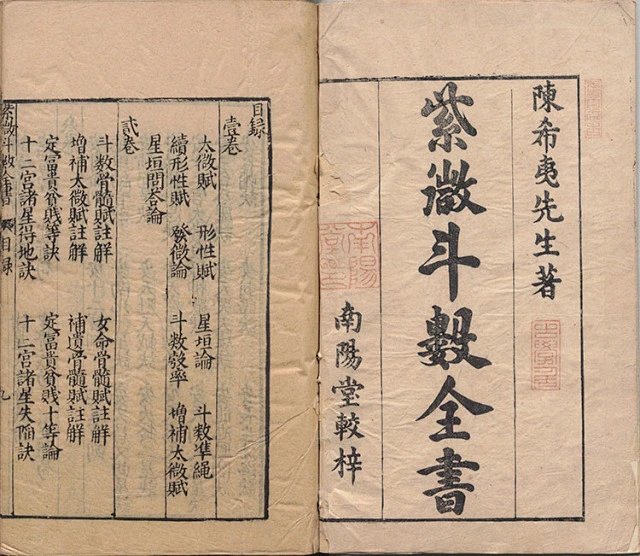 陳希夷先生著
紫微斗數全書
南陽堂較梓
目録
壹卷
太微賦 形性賦 星垣論 斗数準繩
續形性賦 發微論 斗数彀率 增補太微賦
星垣問荅論
貳卷
斗数骨髓賦註解 女命骨髓賦註解
增補太微賦註解 補遺骨髓賦註解
定富貴貧賤等訣 定富貴貧賤十等論
十二宮諸星得地訣 十二宮諸星失陷訣
紫微斗數全書 目録